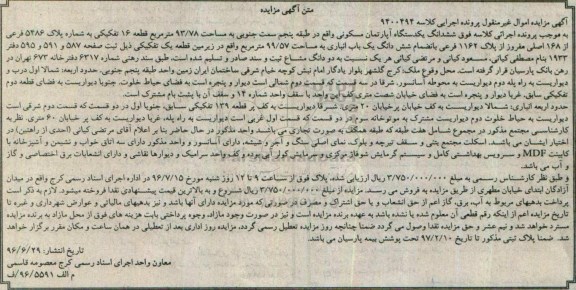 متن آگهی مزایده
آگهی مزایده اموال غیرمنقول پرونده اجرایی کلاسه ۹۴۰۰۴۹۴
به موجب پرونده اجرائی کلاسه فوق ششدانگ یکدستگاه آپارتمان مسکونی واقع در طبقه پنجم سمت جنوبی به مساحت ۹۳/۷۸ مترمربع قطعه ۱۶ تفکیکی به شماره پلاک ۵۲۸۶ فرعی
از ۱۶۸ اصلی مفروز از پلاک ۱۱۶۴ فرعی بانضمام شش دانگ یک باب انباری به مساحت ۹۹/۵۷ مترمربع واقع در زیرزمین قطعه یک تفکیکی ذیل ثبت صفحه ۵۸۷ و ۵۹۱ و ۵۹۵ دفتر
۱۹۳۳ بنام مصطفی کیانی، مسعود کیانی و مرتضی کیانی هر یک نسبت به دو دانگ مشاع ثبت و سند صادر و تسلیم شده است، طبق سند رهنی شماره ۶۳۱۷ دفترخانه ۶۷۳ تهران در
رهن بانک پارسیان قرار گرفته است. محل وقوع ملک: کرج گلشهر بلوار یادگار امام نبش کوچه خیام شرقی ساختمان ایران زمین واحد طبقه پنجم جنوبی، حدود اربعه: شمالا اول درب و
دیواریست به راه پله دوم دیواریست به محوطه آسانسور، شرقا در
تفکیکی سابق، غربا دیوار و پنجره است به فضای خیابان شصت متری
حدود اربعه انباری: شمالا دیواریست به کف خیابان پرخیابان ۲۰ متری، شرقا دیواریست به کف پر قطعه ۱۳۹ تفکیکی سابق، جنوبا اول در دو قسمت که قسمت دوم شرقی است
دیواریست به حیاط خلوت دوم دیواریست مشترک به موتورخانه سوم در دو قسمت که قسمت اول غربی است دیواریست به راه پله، غربا دیواریست به کف پر خیابان ۶۰ متری، نظر به
کارشناسی مجتمع مذکور در مجموع شامل هفت طبقه که طبقه همکف به صورت تجاری می باشد. واحد مذکور در حال حاضر بنا بر اعلام آقای مرتضی کیانی (احدی از راهنین) در
اختیار ایشان می باشد. اسکلت مجتمع بتنی و سقف تیرچه و بلوک، نمای اصلی سنگ و آجر و شیشه، دارای آسانسور و واحد مذکور دارای سه اتاق خواب و نشیمن و آشپزخانه با
کابینت MDF و سرویس بهداشتی کامل و سیستم گرمایش شوفاژ مرکزی و سرمایش کولر آبی بوده و کف واحد سرامیک و دیوارها نقاشی و دارای انشعابات برق اختصاصی و گاز
و آب می باشد.
و طبق نظر کارشناس رسمی به مبلغ ۳/۷۵۰/۰۰۰/۰۰۰ ریال ارزیابی شده، پلاک فوق از ساعت ۹ تا ۱۲ روز شنبه مورخ ۹۶/۷/۱۵ در اداره اجرای اسناد رسمی کرج واقع در میدان
آزادگان ابتدای خیابان مطهری از طریق مزایده به فروش می رسد. مزایده از مبلغ ۳/۷۵۰/۰۰۰/۰۰۰ ریال شروع و به بالاترین قیمت پیشنهادی نقدا فروخته میشود. لازم به ذکر است
پرداخت بدهیهای مربوط به آب، برق، گاز اعم از حق انشعاب و یا حق اشتراک و مصرف در صورتی که مورد مزایده دارای آنها باشد و نیز بدهیهای مالیاتی و عوارض شهرداری و غیره تا
تاریخ مزایده اعم از اینکه رقم قطعی آن معلوم شده یا نشده باشد به عهده برنده مزایده است و نیز در صورت وجود مازاد، وجوه پرداختی بابت هزینه های فوق از محل مازاد به برنده مزایده
مسترد خواهد شد و نیم عشر و حق مزایده نقدا وصول می گردد ضمنا چنانچه روز مزایده تعطیل رسمی گردد، مزایده روز اداری بعد از تعطیلی در همان ساعت و مکان مقرر برگزار خواهد
شد. ضمنا پلاک ثبتی مذکور تا تاریخ ۹۷/۲/۱۰ تحت پوشش بیمه پارسیان می باشد.
تاریخ انتشار: ۹۶/۶/۲۹
معاون واحد اجرای اسناد رسمی کرج معصومه قاسمی
م الف ۹۶/۵۵۹۱/ف